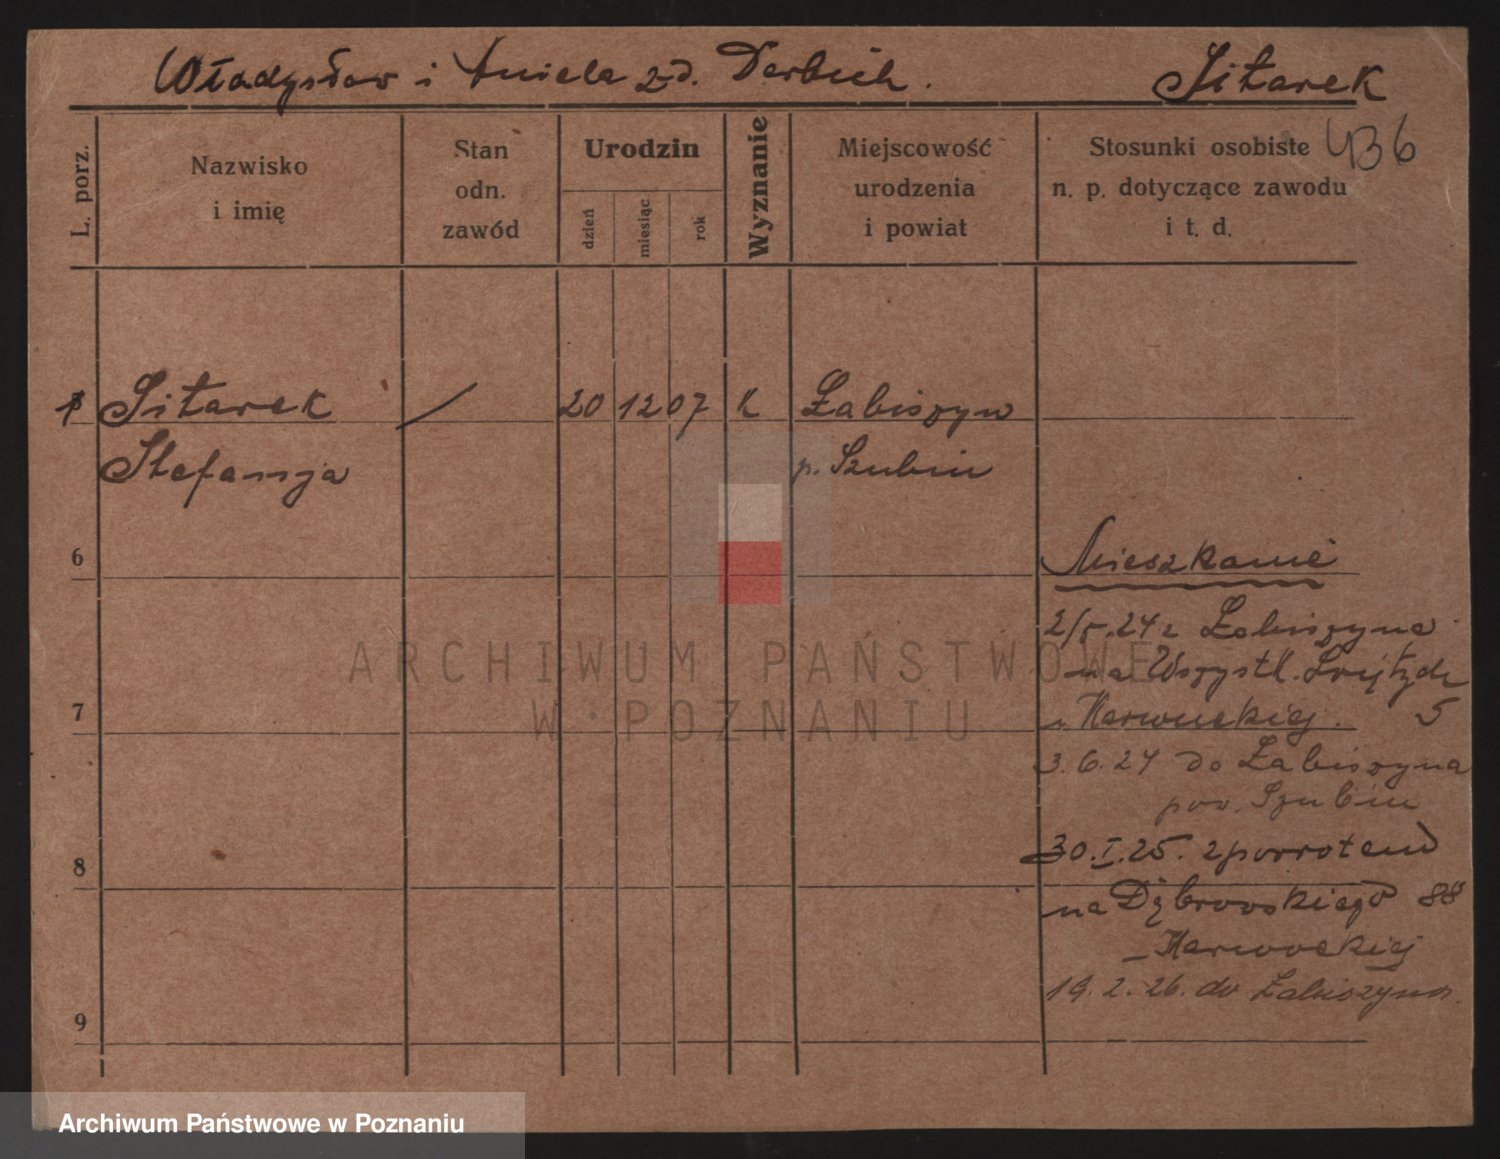 Władysław i Aniela zd. Derbich. Sitarek
436
L. porz.
Nazwisko
i imię
Stan
odn.
zawód
Urodzin
dzień
miesiąc
rok
Wyznanie
Miejscowość
urodzenia
i powiat
Stosunki osobiste
n. p. dotyczące zawodu
i t. d.
1 Sitarek / 20 12 07 k Łabiszyn
Stefanja p. Szubin
6
Mieszkanie
2/5.24 z Łabiszyna
7
na Wszystk. Świętych
5
3.6.24 do Łabiszyna
pow. Szubin
8
30.I.25. zpowrotem
na Dąbrowskiego 88
19.2.26. do Łabiszyna
9
ARCHIWUM PAŃSTWOWE
W POZNANIU
Archiwum Państwowe w Poznaniu